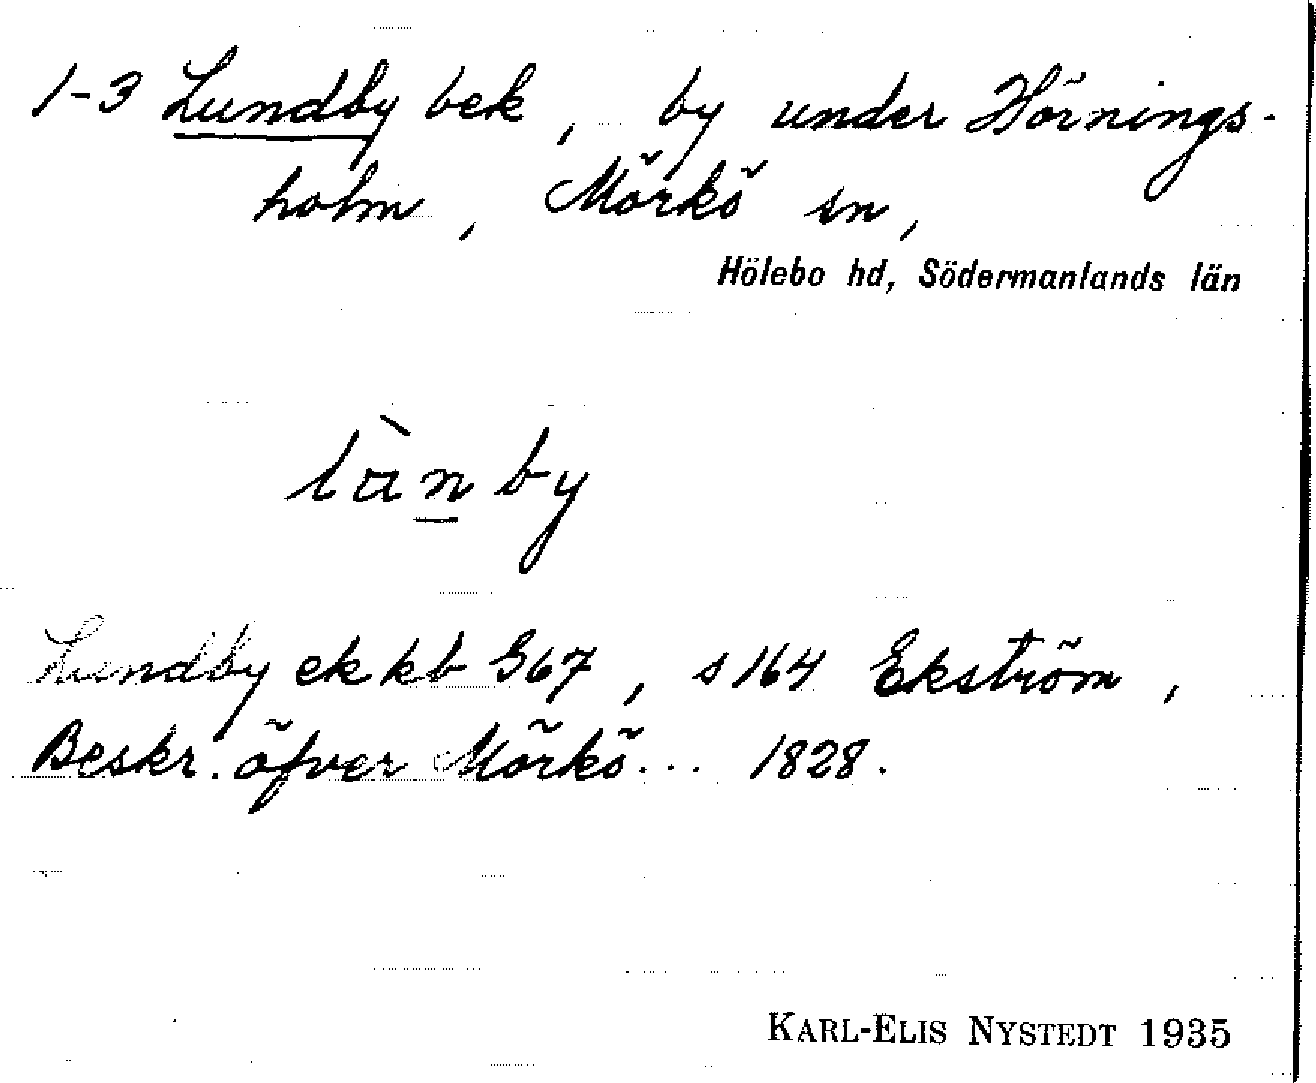 1-3 Lundby bek, by under Hörnings-
holm, Mörkö sn,
Hölebo hd, Södermanlands län
lànby
Lundby ek kb G67, s 164 Ekström,
Beskr. öfver Mörkö... 1828.
KARL-ELIS NYSTEDT 1935